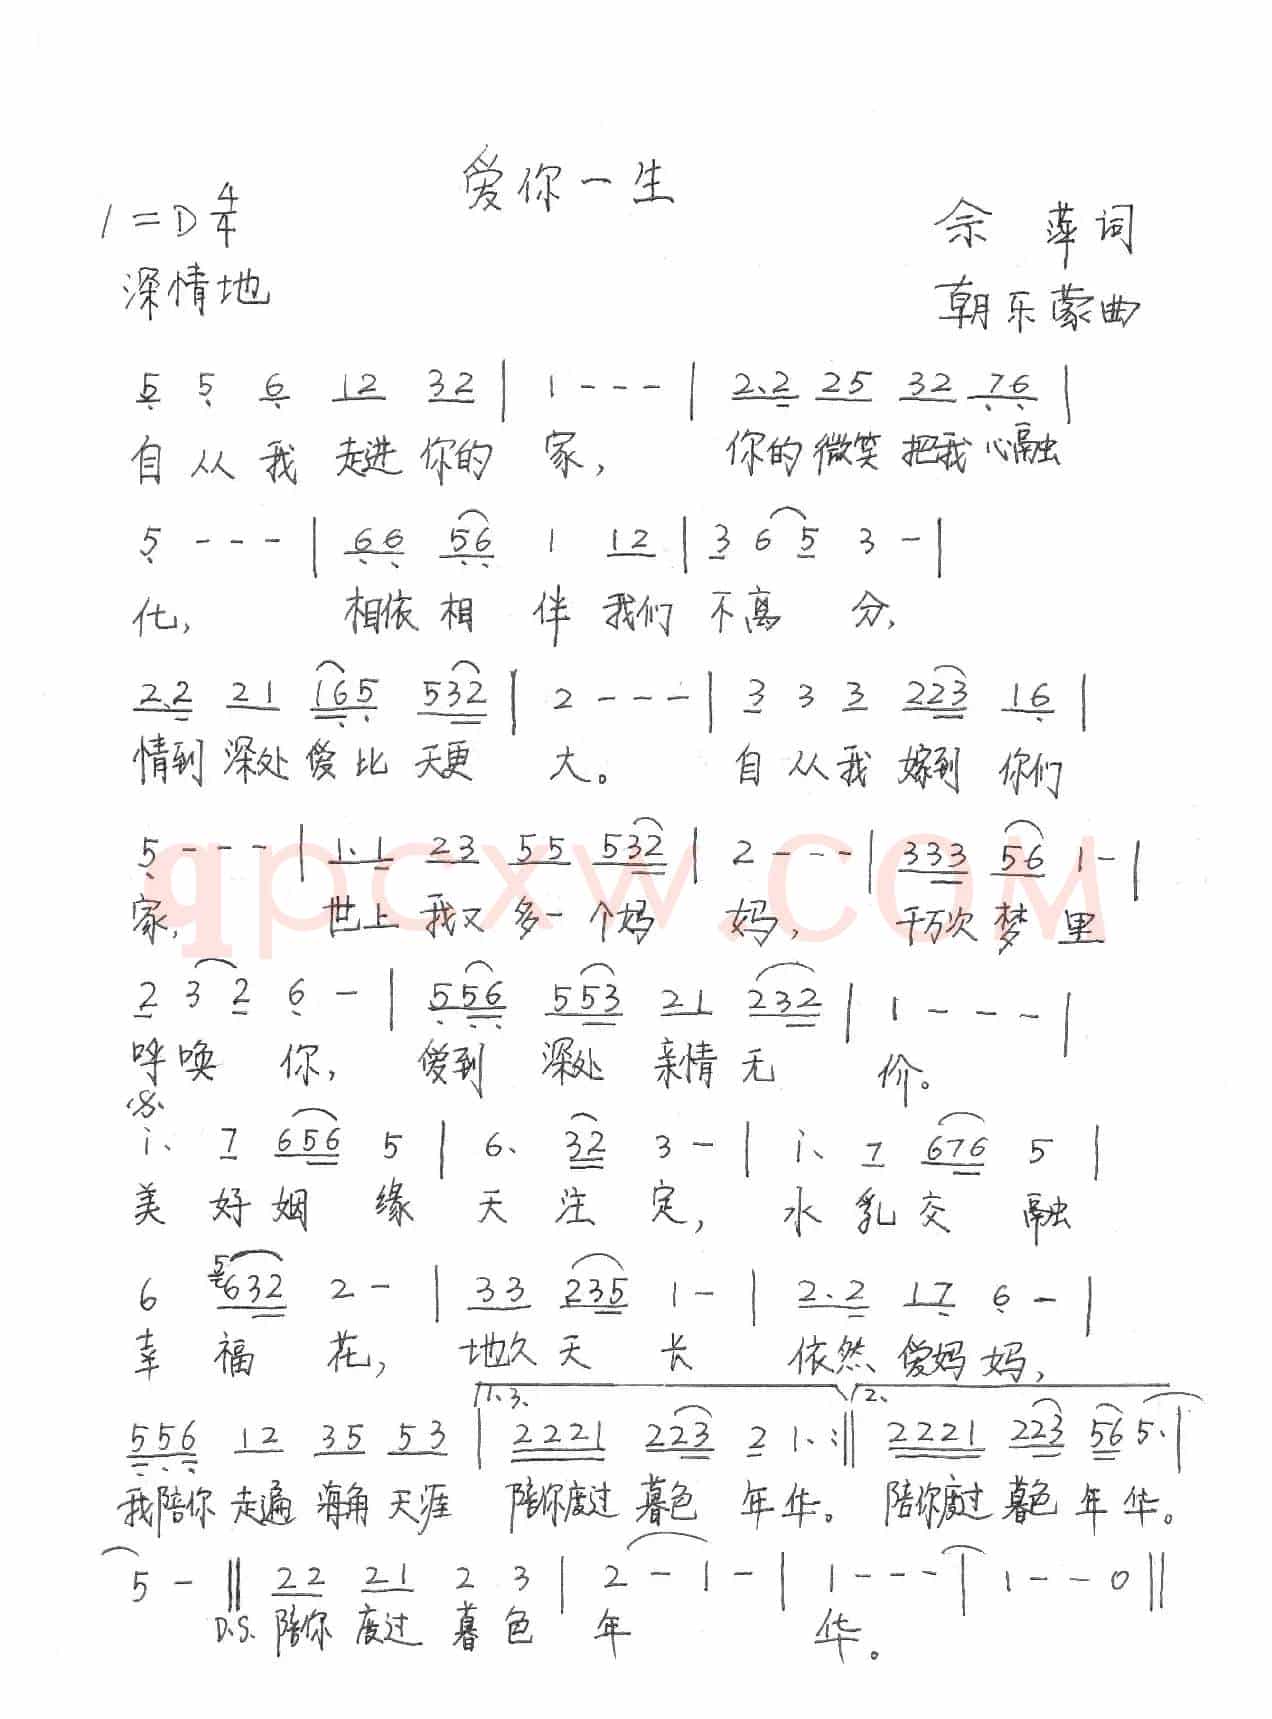 爱你一生
1=D 4/4
佘 萍词
深情地
朝乐蒙曲
5 5 6 12 32 | 1 - - - | 2.2 25 32 76 |
自从我 走进 你的 家， 你的 微笑 把我 心融
5 - - - | 66 56 1 12 | 3 6 5 3 - |
化， 相依 相 伴 我们 不离 分，
2.2 21 165 532 | 2 - - - | 3 3 3 223 16 |
情到 深处 爱比 天更 大。 自从我 嫁到 你们
5 - - - | 1.1 23 55 532 | 2 - - - | 333 56 1 - |
家， 世上 我又 多一 个妈 妈， 千万次 梦 里
qpcxw.com
2 3 2 6 - | 556 553 21 232 | 1 - - - |
呼唤 你， 爱到 深处 亲情 无 价。
i. 7 656 5 | 6. 32 3 - | i. 7 676 5 |
美 好姻 缘 天 注 定， 水 乳 交 融
6 5632 2 - | 33 235 1 - | 2.2 17 6 - |
幸 福 花， 地久 天 长 依然 爱妈 妈，
1.3. 2.
556 12 35 53 | 2221 223 2 1. :|| 2221 223 56 5. |
我陪你 走遍 海角 天涯 陪你度过 暮色 年 华。 陪你度过 暮色 年 华。
5 - || 22 21 2 3 | 2 - 1 - | 1 - - - | 1 - - 0 ||
D.S. 陪你 度过 暮 色 年 华。